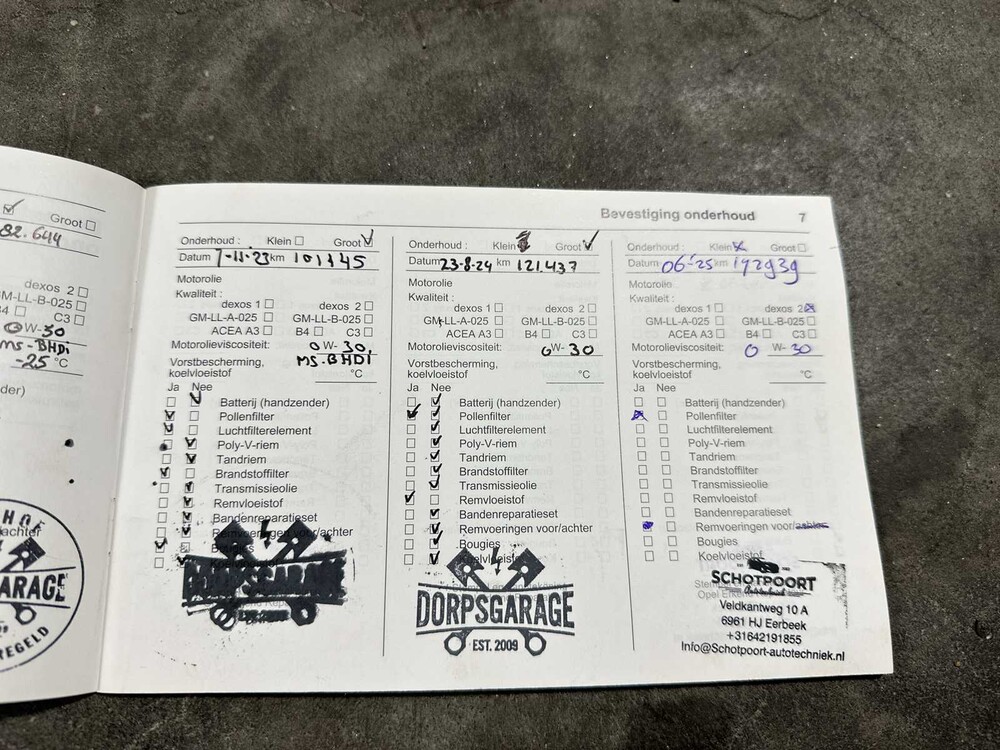 Groot
82.644
dexos 2
GM-LL-B-025
C3
W-30
MS-BHDi
-25 °C
GARAGE
Bevestiging onderhoud 7
Onderhoud : Klein Groot
Datum 7-11-23 km 101145
Motorolie
Kwaliteit :
dexos 1 dexos 2
GM-LL-A-025 GM-LL-B-025
ACEA A3 B4 C3
Motorolieviscositeit: 0 W- 30
MS-BHDi
Vorstbescherming,
koelvloeistof °C
Ja Nee
Batterij (handzender)
Pollenfilter
Luchtfilterelement
Poly-V-riem
Tandriem
Brandstoffilter
Transmissieolie
Remvloeistof
Bandenreparatieset
Remvoeringen voor/achter
DORPSGARAGE
Onderhoud : Klein Groot
Datum 23-8-24 km 121.437
Motorolie
Kwaliteit :
dexos 1 dexos 2
GM-LL-A-025 GM-LL-B-025
ACEA A3 B4 C3
Motorolieviscositeit: 0 W- 30
Vorstbescherming,
koelvloeistof °C
Ja Nee
Batterij (handzender)
Pollenfilter
Luchtfilterelement
Poly-V-riem
Tandriem
Brandstoffilter
Transmissieolie
Remvloeistof
Bandenreparatieset
Remvoeringen voor/achter
Bougies
Koelvloeistof
DORPSGARAGE
EST. 2009
Onderhoud : Klein Groot
Datum 06-'25 km 192939
Motorolie
Kwaliteit :
dexos 1 dexos 2
GM-LL-A-025 GM-LL-B-025
ACEA A3 B4 C3
Motorolieviscositeit: 0 W- 30
Vorstbescherming,
koelvloeistof °C
Ja Nee
Batterij (handzender)
Pollenfilter
Luchtfilterelement
Poly-V-riem
Tandriem
Brandstoffilter
Transmissieolie
Remvloeistof
Bandenreparatieset
Remvoeringen voor/achter
Bougies
Koelvloeistof
SCHOTPOORT
Veldkantweg 10 A
6961 HJ Eerbeek
+31642191855
Info@Schotpoort-autotechniek.nl